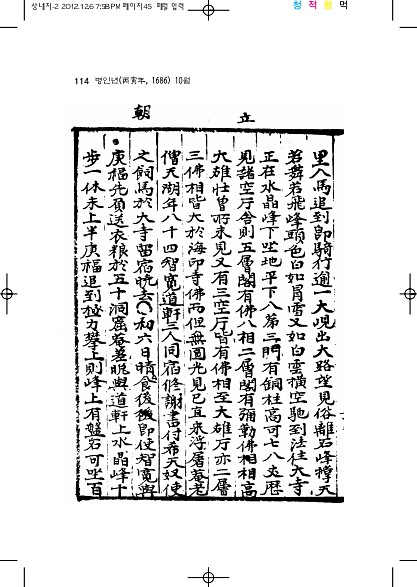 2012.12.6 7:58 PM 페이지45
청 적 황 먹
114 병인년(丙寅年, 1686) 10월
朝
立
里人馬追到即騎行逾一大峴出大路望見俗離石峰撑天
若舞若飛峰頭色白如雪又如白雲橫空馳到法住大寺
正在水晶峰下地平下入第三門有銅柱高可七八丈歷
見諸空庁舍則五層閣有佛八相二層閣有弥勒佛相相高
大雄壮曾所未見又有三空庁皆有佛相至大雄庁亦二層
三佛相皆大於海印寺佛而但無圓光見已直來浮屠菴老
僧天湖年八十四智寬道軒三人同宿修謝書付希天奴使
之飼馬於大寺留宿去○初六日晴食後後即使智寬與
庚福先領送衣粮於五十洞窟菴晩與道軒上水晶峰十
步一休未上半庚福追到極力攀上則峰上有盤石可坐百